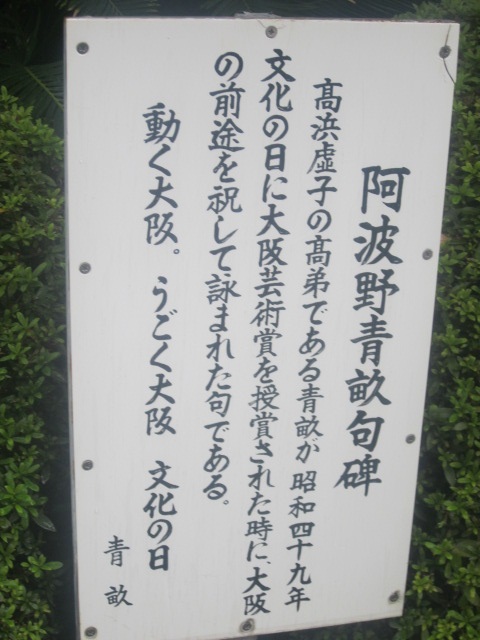 阿波野青畝句碑
高浜虚子の高弟である青畝が昭和四十九年
文化の日に大阪芸術賞を授賞された時に、大阪
の前途を祝して詠まれた句である。
動く大阪。うごく大阪 文化の日
青畝